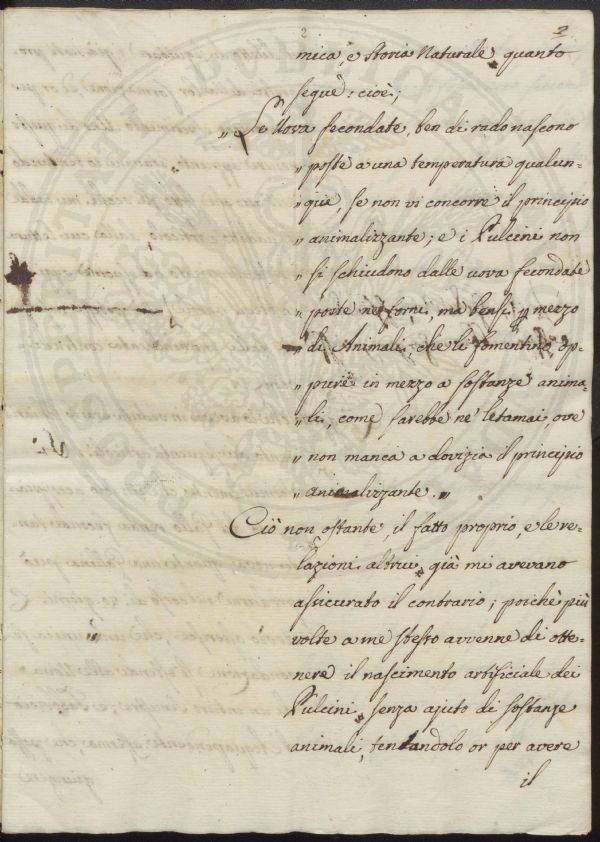 2 2
mica, e Storia Naturale, quanto
segue: cioè;
„ Le Uova fecondate, ben di rado nascono
„ poste a una temperatura qualun=
„ que, se non vi concorre il principio
„ animalizzante; e i Pulcini non
„ si schiudono dalle uova fecondate
„ poste ne' forni, ma bensì p mezzo
„ di Animali, che li fomentino op=
„ pure in mezzo a sostanze anima=
„ li, come sarebbe ne' letamai, ove
„ non manca a dovizia il principio
„ animalizzante. „
Ciò non ostante, il fatto proprio, e le re=
lazioni altrui, già mi avevano
assicurato il contrario; poichè più
volte a me stesso avvenne di otte=
nere il nascimento artificiale dei
Pulcini, senza ajuto di sostanze
animali, tentandolo or per avere
il